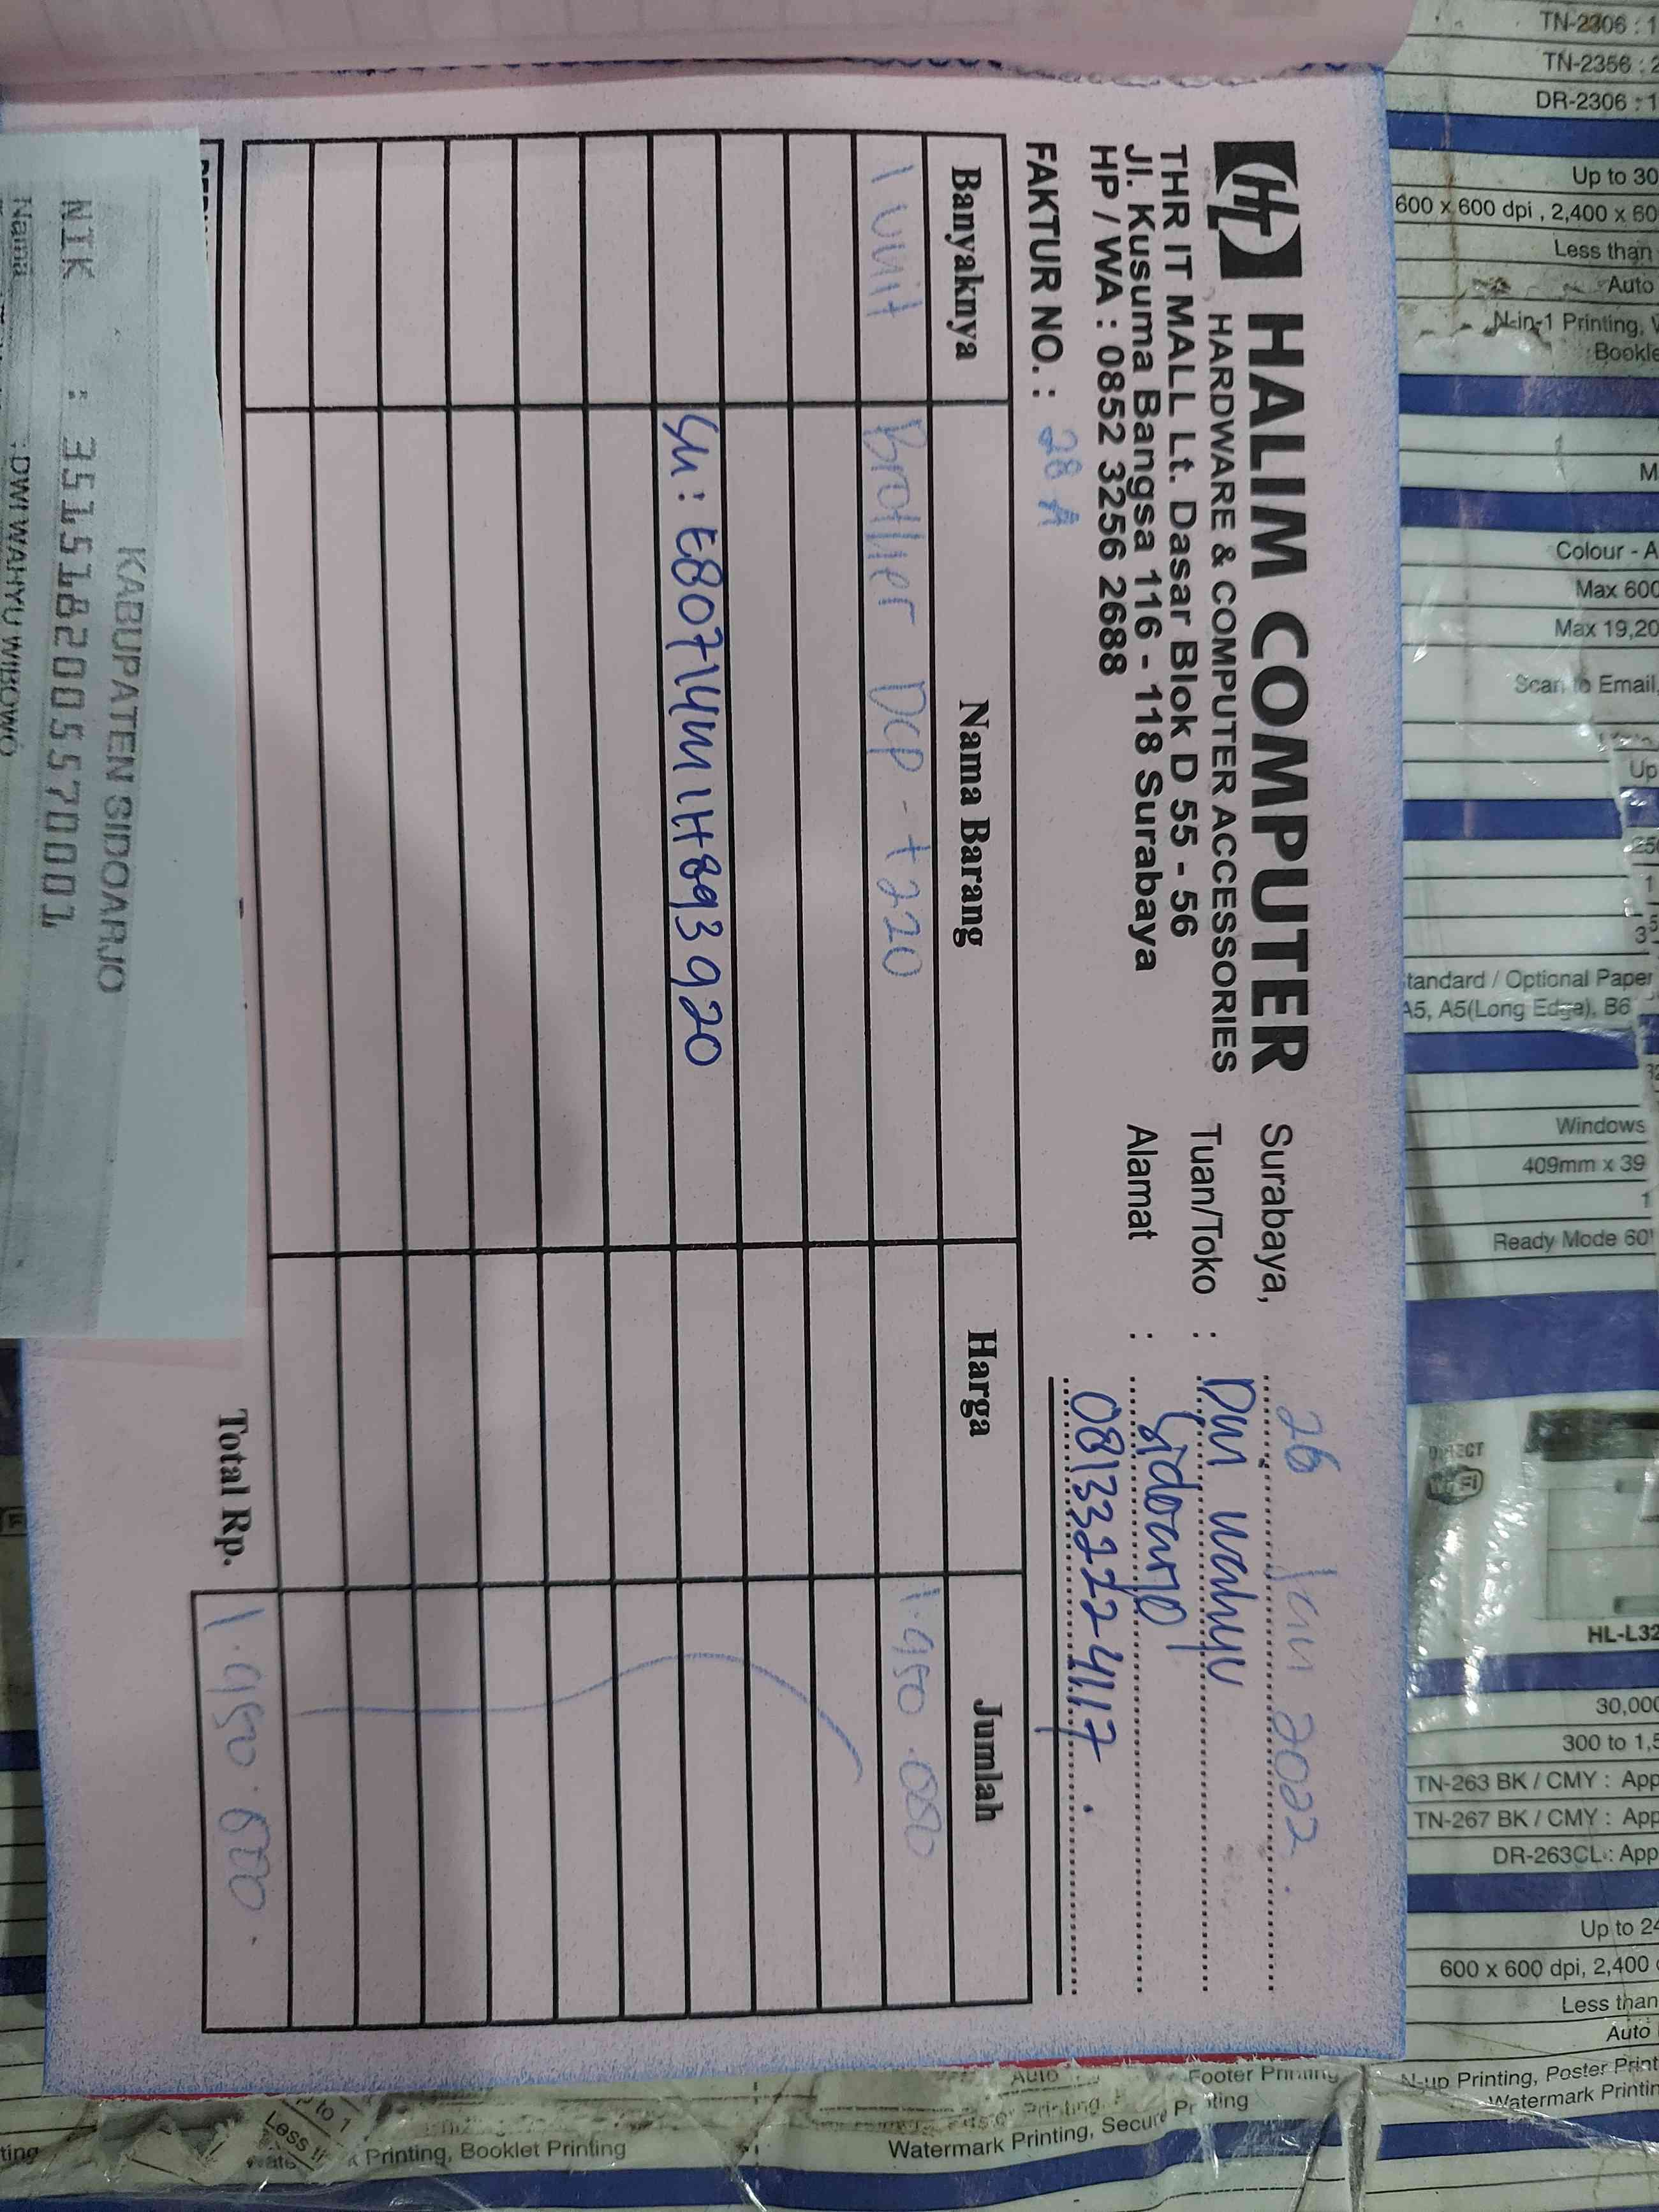 HALIM COMPUTER
HARDWARE & COMPUTER ACCESSORIES
THR IT MALL Lt. Dasar Blok D 55 - 56
Jl. Kusuma Bangsa 116 - 118 Surabaya
HP / WA : 0852 3256 2688
FAKTUR NO. : 28 A
Surabaya, 26 Jan 2022.
Tuan/Toko : Dwi Wahyu
Alamat : Sidoarjo
081332224117.
Banyaknya Nama Barang Harga Jumlah
1 unit Brother DCP - t220 1.950.000
SN : E80714M1H893920
Total Rp. 1.950.000.
KABUPATEN SIDOARJO
NIK : 3515182005570001
Nama : DWI WAHYU WIBOWO
TN-2306 : 1
TN-2356 : 2
DR-2306 : 1
Up to 30
600 x 600 dpi , 2,400 x 60
Less than
Auto
N-in-1 Printing,
Bookle
M
Colour - A
Max 600
Max 19,20
Scan to Email,
Up
Standard / Optional Paper
A5, A5(Long Edge), B6
Windows
409mm x 39
1
Ready Mode 60
HL-L32
30,000
300 to 1,5
TN-263 BK / CMY : App
TN-267 BK / CMY : App
DR-263CL : App
Up to 24
600 x 600 dpi, 2,400
Less than
Auto
N-up Printing, Poster Print
Watermark Printin
Auto
Footer Printing
Watermark Printing, Secure Printing
Printing, Booklet Printing